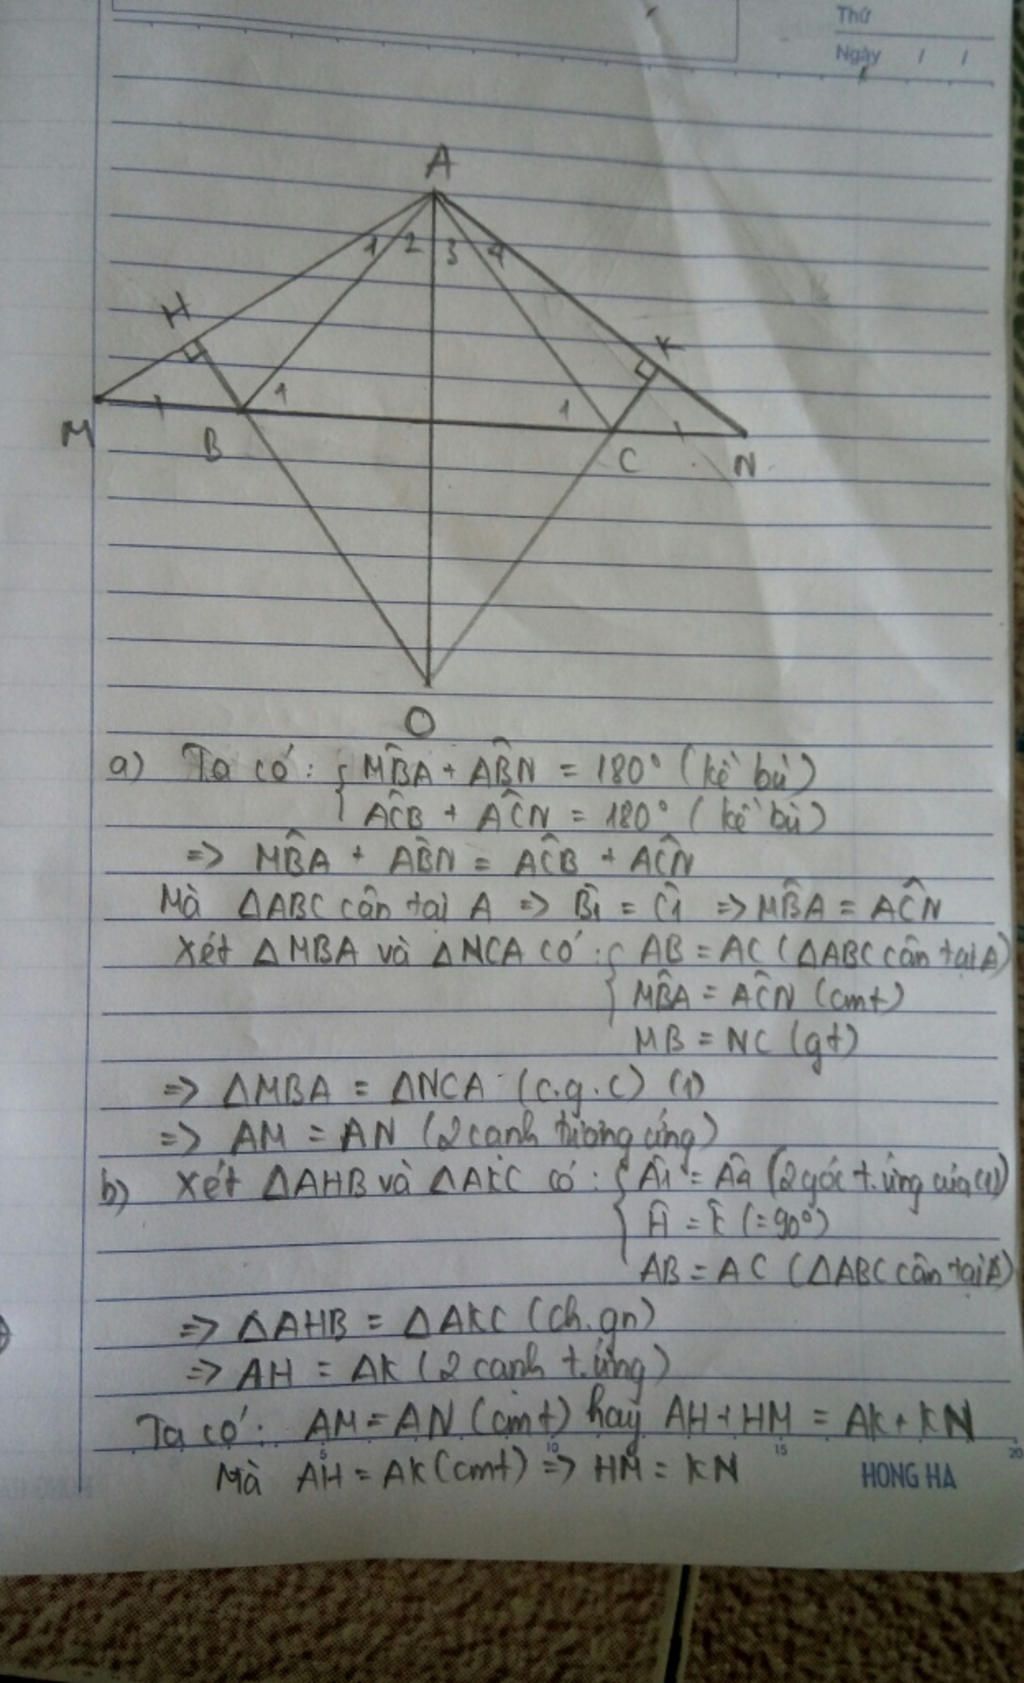 Thứ
Ngày / /
A
1 2 3 4
H
K
M
1
1
B
C
N
O
a) Ta có: { MB̂A + AB̂N = 180° (kề bù)
AĈB + AĈN = 180° (kề bù)
=> MB̂A + AB̂N = AĈB + AĈN
Mà △ABC cân tại A => B̂1 = Ĉ1 => MB̂A = AĈN
Xét △MBA và △NCA có: { AB = AC (△ABC cân tại A)
MB̂A = AĈN (cmt)
MB = NC (gt)
=> △MBA = △NCA (c.g.c) (1)
=> AM = AN (2 cạnh tương ứng)
b) Xét △AHB và △AKC có: { Â1 = Â4 (2 góc t.ứng của (1))
Ĥ = K̂ (=90°)
AB = AC (△ABC cân tại A)
=> △AHB = △AKC (ch.gn)
=> AH = AK (2 cạnh t.ứng)
Ta có: AM = AN (cmt) hay AH + HM = AK + KN
5 10 15 20
Mà AH = AK (cmt) => HM = KN
HONG HA